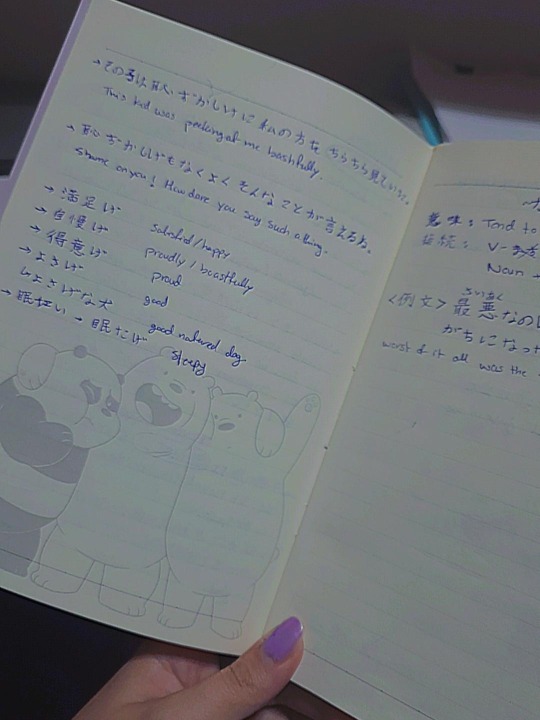 → その子は恥ずかしげに私の方をちらちら見ていた。
This kid was peeking at me bashfully.
→ 恥ずかしげもなくよくそんなことが言えるね。
Shame on you! How dare you say such a thing.
→ 満足げ satisfied/happy
→ 自慢げ proudly / boastfully
→ 得意げ proud
→ よさげ good
↳よさげな犬 good natured dog.
→ 眠たい → 眠たげ sleepy
意味: Tend to
接続: V-ます
Noun
<例文> 最悪なの
さいあく
がちになっ
worst of it all was the